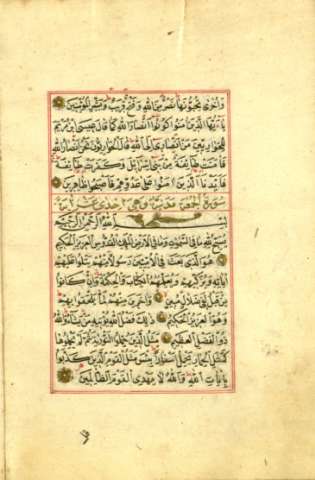 وَاُخْرٰى تُحِبُّونَهَا نَصْرٌ مِنَ اللهِ وَفَتْحٌ قَرِيبٌ وَبَشِّرِ الْمُؤْمِنِينَ
يَا اَيُّهَا الَّذِينَ اٰمَنُوا كُونُوا اَنْصَارَ اللهِ كَمَا قَالَ عِيسَى ابْنُ مَرْيَمَ
لِلْحَوَارِيِّينَ مَنْ اَنْصَارِى اِلَى اللهِ قَالَ الْحَوَارِيُّونَ نَحْنُ اَنْصَارُ اللهِ
فَاٰمَنَتْ طَائِفَةٌ مِنْ بَنِى اِسْرَائِلَ وَكَفَرَتْ طَائِفَةٌ
فَاَيَّدْنَا الَّذِينَ اٰمَنُوا عَلٰى عَدُوِّهِمْ فَاَصْبَحُوا ظَاهِرِينَ
سورة الجمعة مدنية وهى احدى عشر اية
بِسْمِ اللهِ الرَّحْمٰنِ الرَّحِيمِ
يُسَبِّحُ لِلّٰهِ مَا فِى السَّمٰوَاتِ وَمَا فِى الْاَرْضِ الْمَلِكِ الْقُدُّوسِ الْعَزِيزِ الْحَكِيمِ
هُوَ الَّذِى بَعَثَ فِى الْاُمِّيِّينَ رَسُولًا مِنْهُمْ يَتْلُوا عَلَيْهِمْ
اٰيَاتِهِ وَيُزَكِّيهِمْ وَيُعَلِّمُهُمُ الْكِتَابَ وَالْحِكْمَةَ وَاِنْ كَانُوا
مِنْ قَبْلُ لَفِى ضَلَالٍ مُبِينٍ وَاٰخَرِينَ مِنْهُمْ لَمَّا يَلْحَقُوا بِهِمْ
وَهُوَ الْعَزِيزُ الْحَكِيمُ ذٰلِكَ فَضْلُ اللهِ يُؤْتِيهِ مَنْ يَشَاءُ وَاللهُ
ذُو الْفَضْلِ الْعَظِيمِ مَثَلُ الَّذِينَ حُمِّلُوا التَّوْرٰيةَ ثُمَّ لَمْ يَحْمِلُوهَا
كَمَثَلِ الْحِمَارِ يَحْمِلُ اَسْفَارًا بِئْسَ مَثَلُ الْقَوْمِ الَّذِينَ كَذَّبُوا
بِاٰيَاتِ اللهِ وَاللهُ لَا يَهْدِى الْقَوْمَ الظَّالِمِينَ